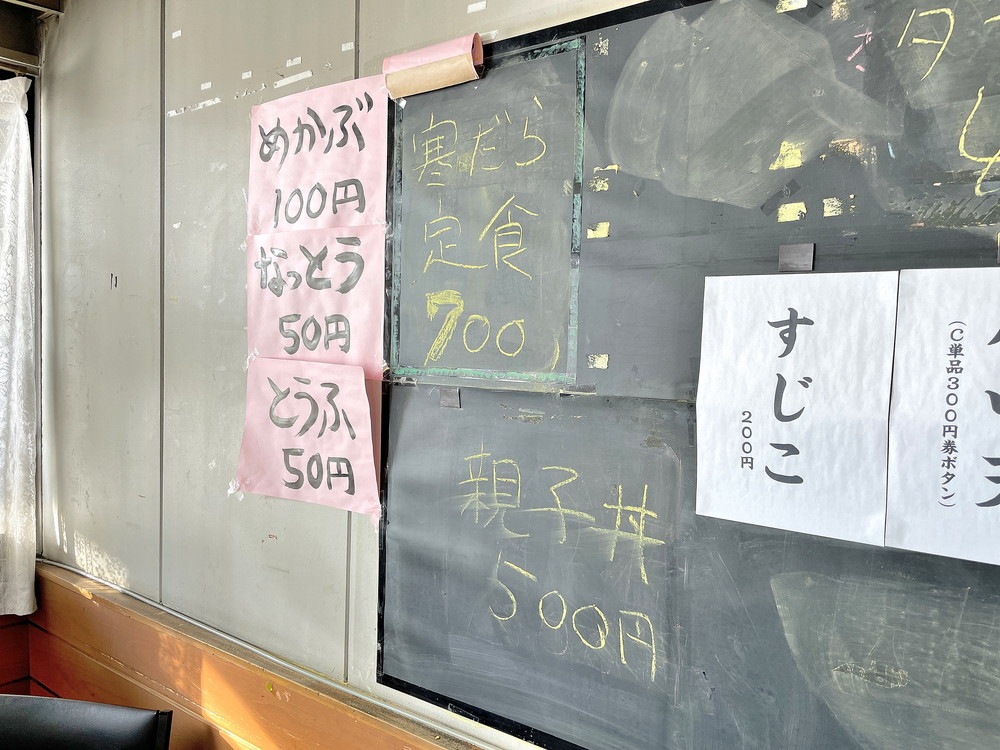 めかぶ
100円
なっとう
50円
とうふ
50円
寒だら
定食
700
親子丼
500円
すじこ
200円
(C単品300円券ボタン)
タ